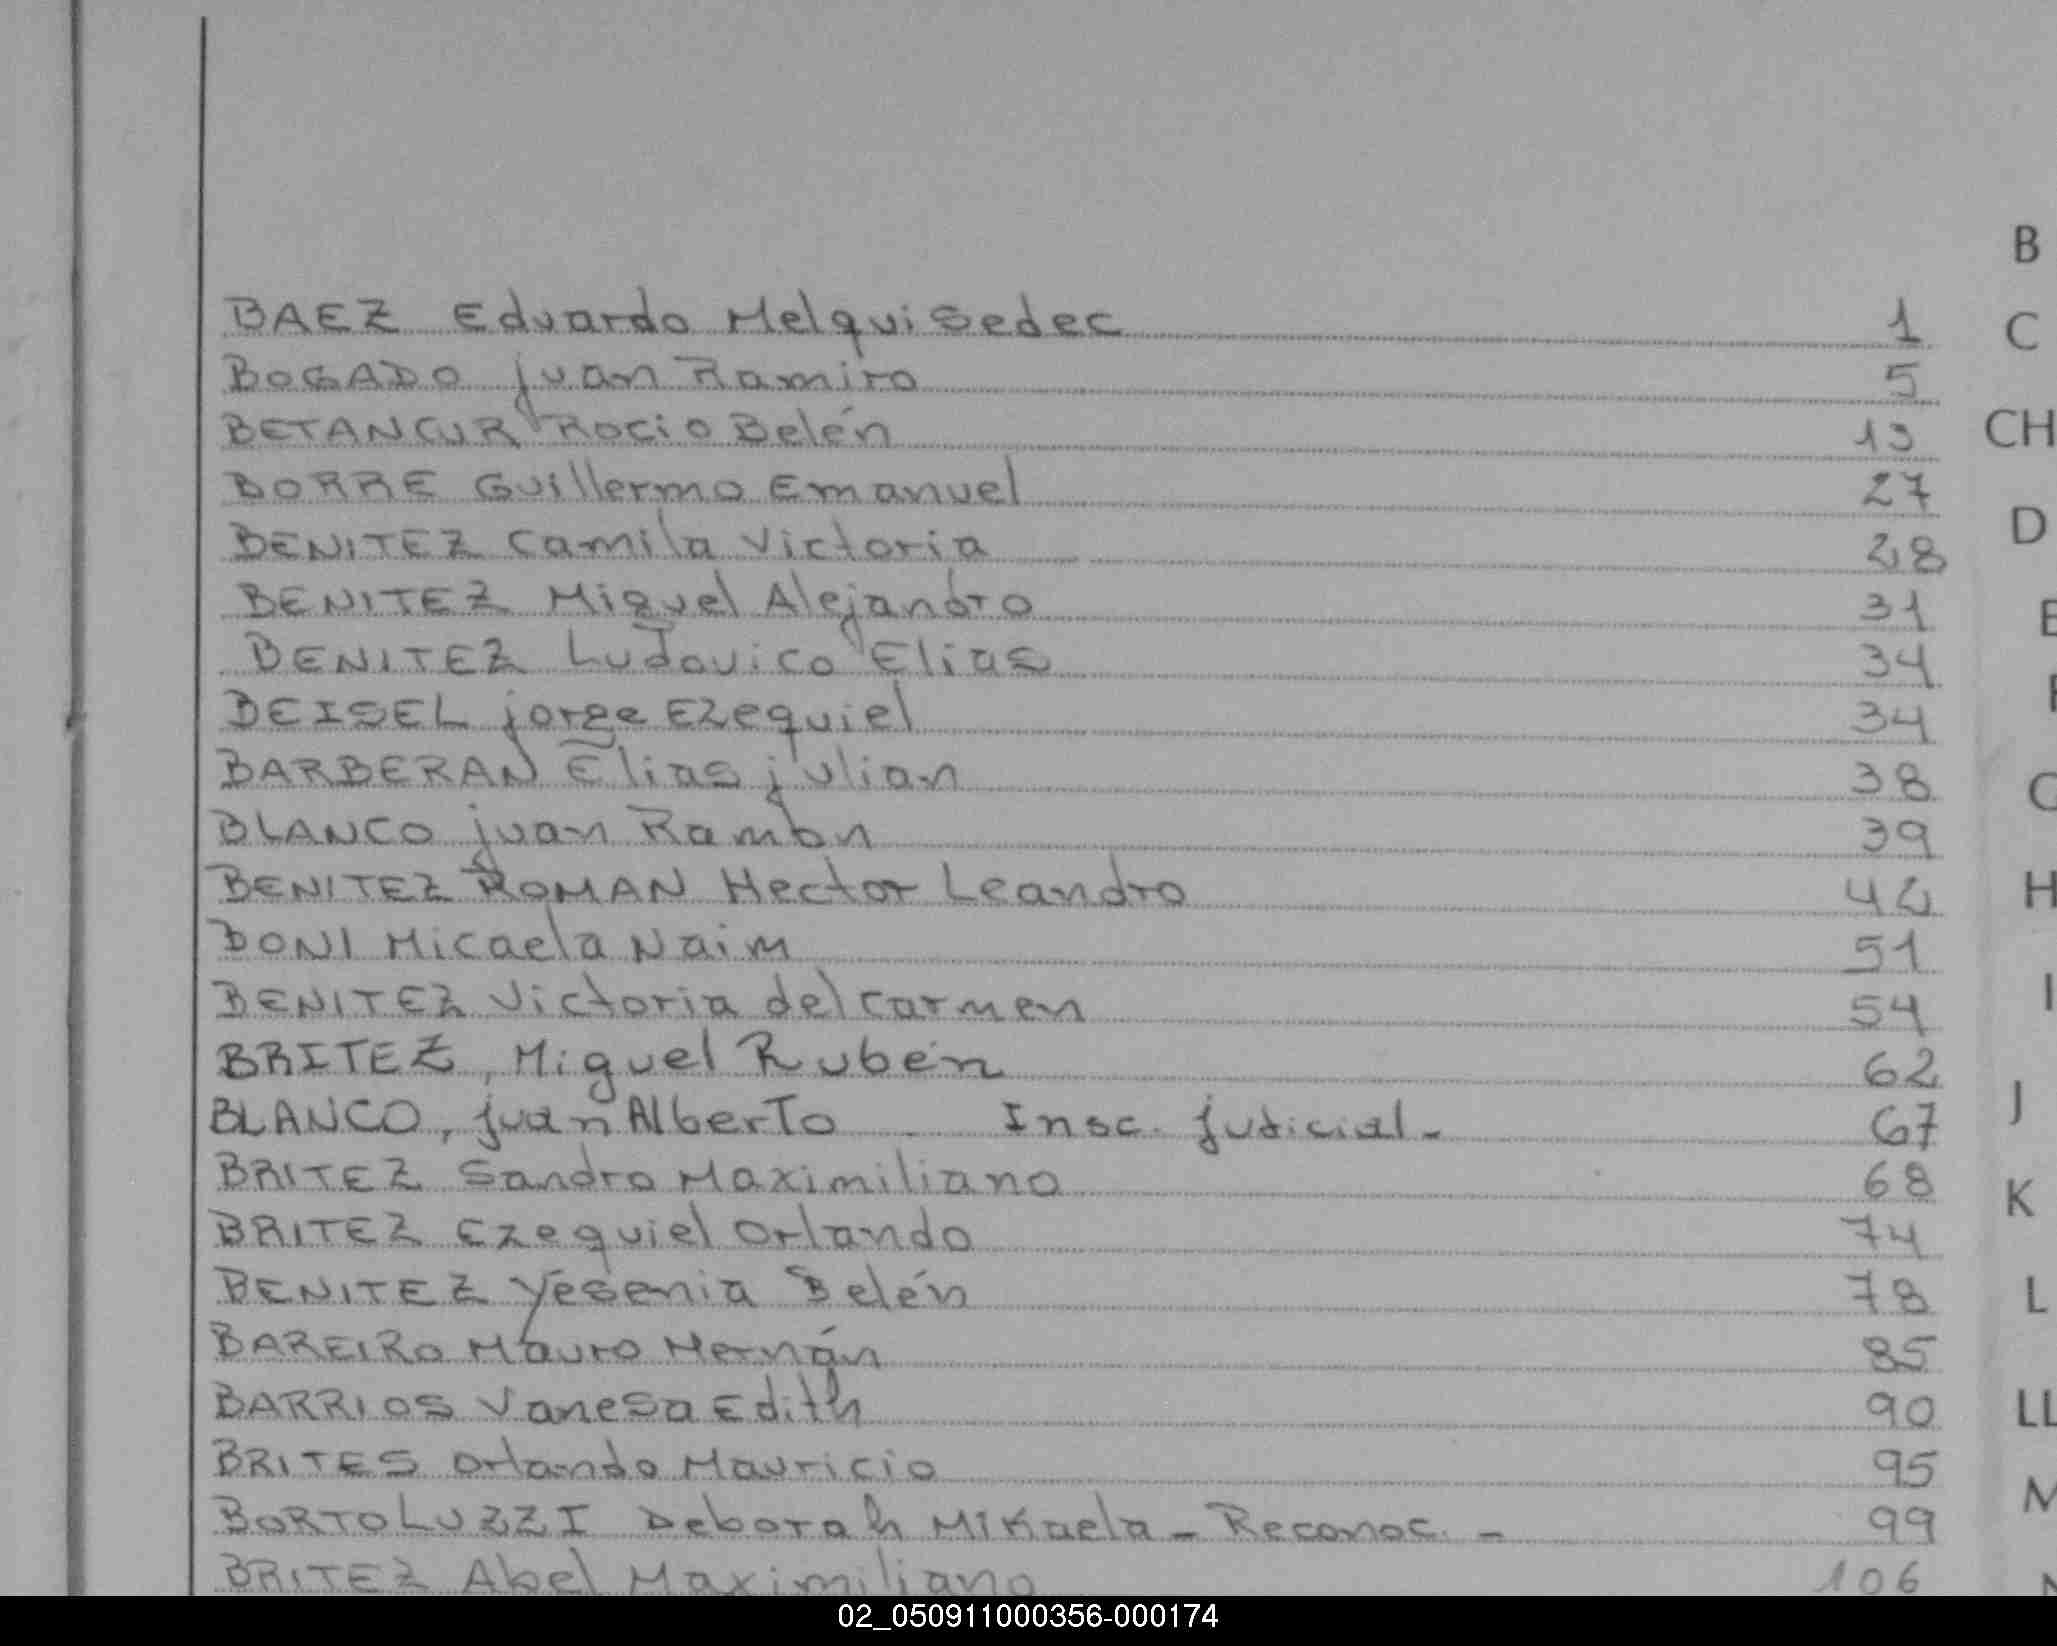 BAEZ Eduardo Melquisedec 1
BOGADO Juan Ramiro 5
BETANCUR Rocio Belén 13
BORRE Guillermo Emanuel 27
BENITEZ Camila Victoria 28
BENITEZ Miguel Alejandro 31
BENITEZ Ludovico Elias 34
BEISEL Jorge Ezequiel 34
BARBERAN Elias Julian 38
BLANCO Juan Ramón 39
BENITEZ ROMAN Hector Leandro 42
BONI Micaela Naim 51
BENITEZ Victoria del Carmen 54
BRITEZ, Miguel Rubén 62
BLANCO, Juan Alberto Insc. Judicial - 67
BRITEZ Sandro Maximiliano 68
BRITEZ Ezequiel Orlando 74
BENITEZ Yésenia Belén 78
BAREIRO Mauro Hernán 85
BARRIOS Vanesa Edith 90
BRITES Orlando Mauricio 95
BORTOLUZZI Deborah Mikaela - Reconoc. - 99
BRITEZ Abel Maximiliano 106
B
C
CH
D
E
F
G
H
I
J
K
L
LL
M
N
02_050911000356-000174